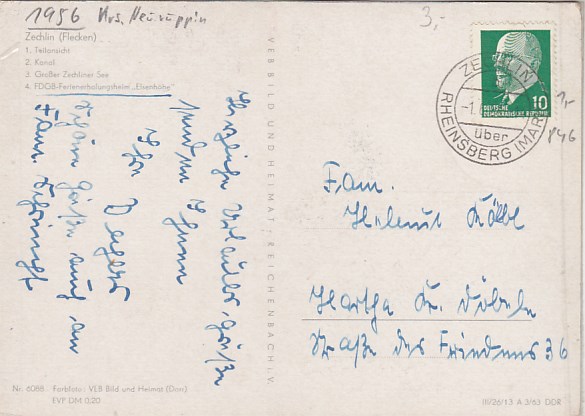 1956 Krs. Neuruppin
3,-
Zechlin (Flecken)
1. Teilansicht
2. Kanal
3. Großer Zechliner See
4. FDGB-Ferienerholungsheim „Elsenhöhe"
Herzliche Urlaubsgrüße
senden Ihnen
Ihre
Schöne Grüße auch an
Fam.
VEB BILD UND HEIMAT, REICHENBACH I. V.
ZECHLIN
-1.
über
RHEINSBERG (MARK)
DEUTSCHE
DEMOKRATISCHE REPUBLIK
10
1,-
P46
Fam.
Helmut
Hartha Kr. Döbeln
Straße des Friedens 36
Nr. 6088 Farbfoto: VEB Bild und Heimat (Darr)
EVP DM 0.20
II/26/13 A 3/63 DDR